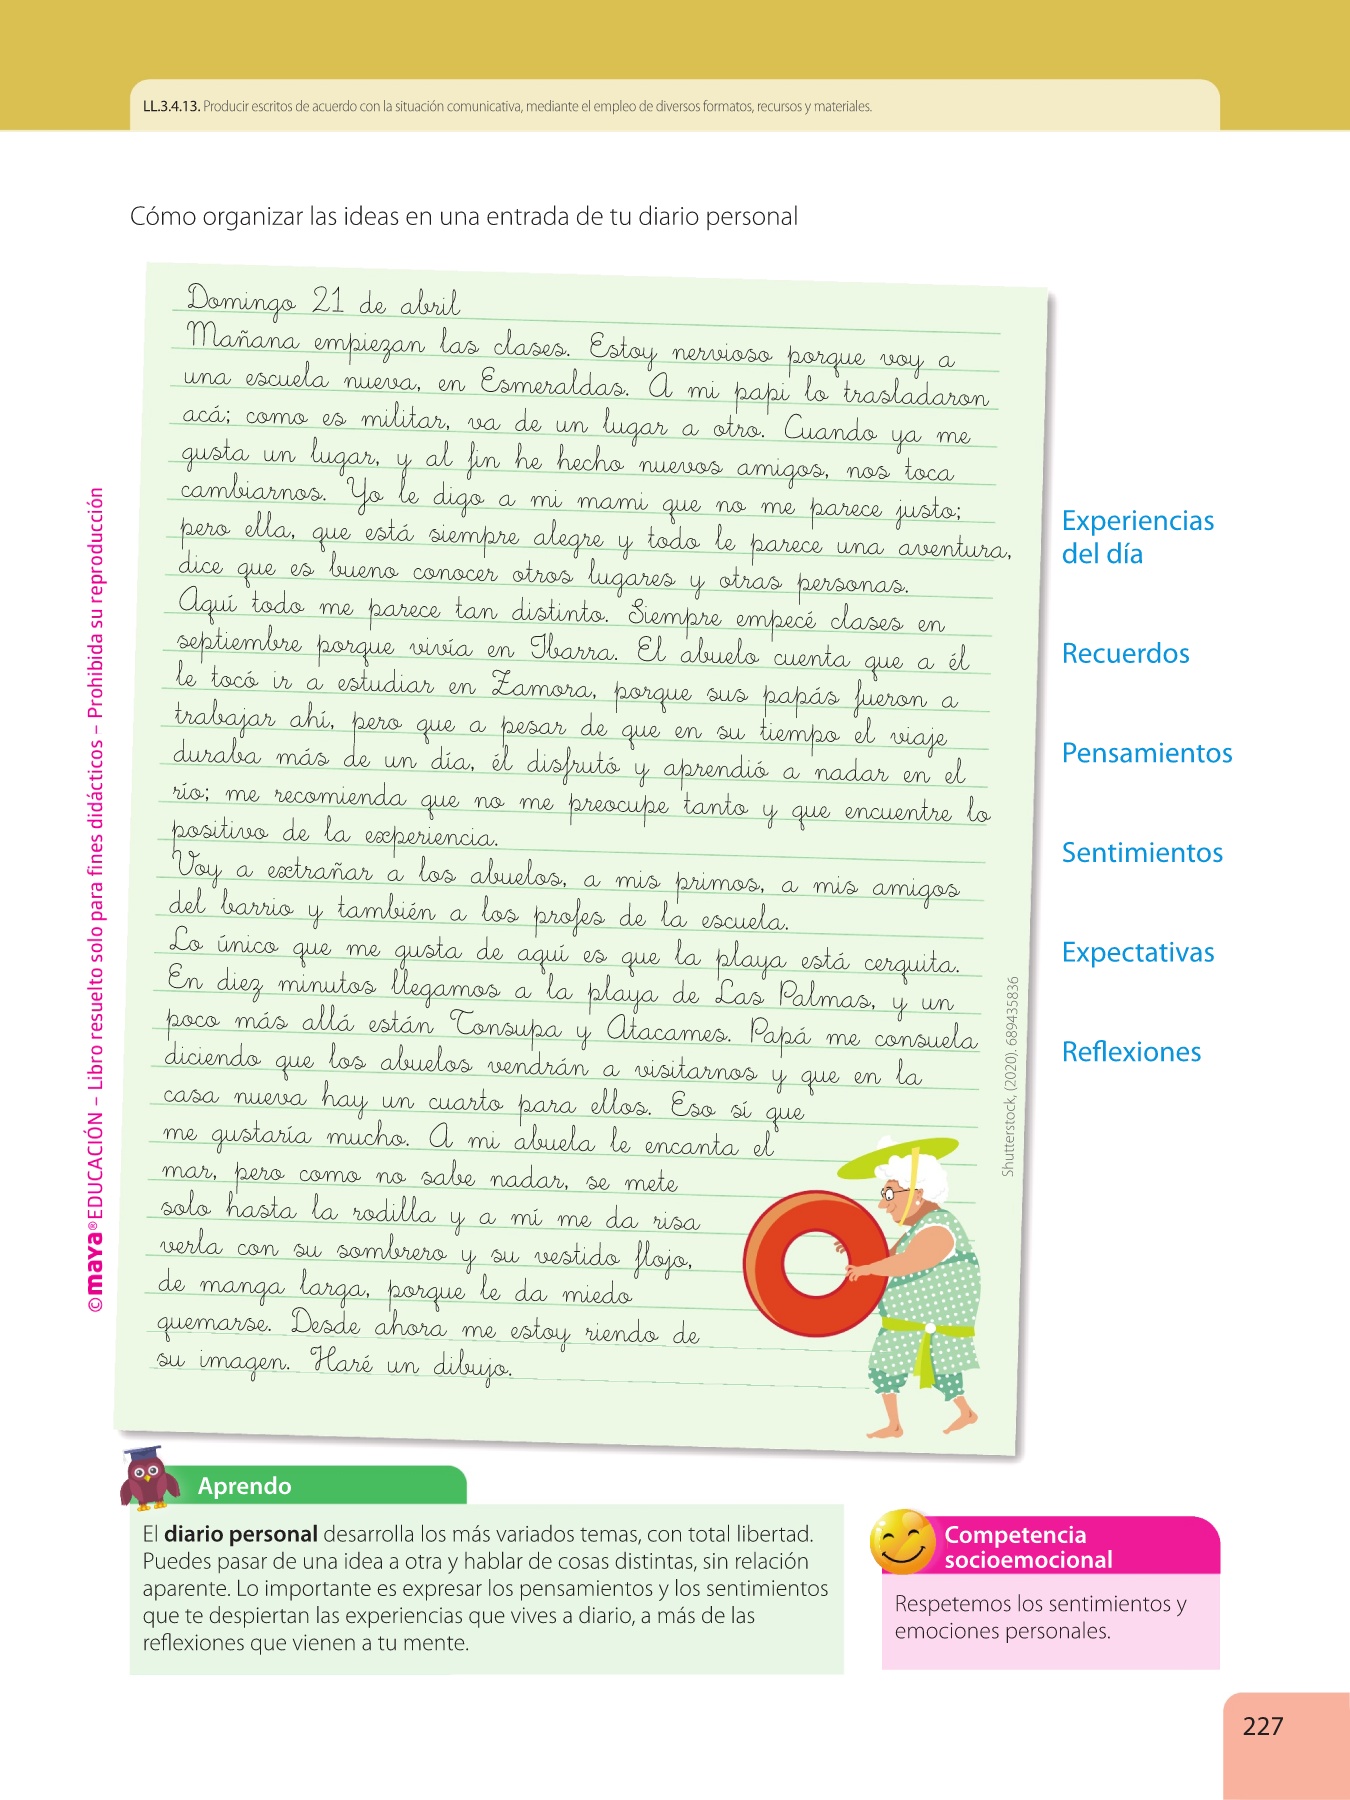 LL.3.4.13. Producir escritos de acuerdo con la situación comunicativa, mediante el empleo de diversos formatos, recursos y materiales.
Cómo organizar las ideas en una entrada de tu diario personal
Domingo 21 de abril
Mañana empiezan las clases. Estoy nervioso porque voy a
una escuela nueva, en Esmeraldas. A mi papi lo trasladaron
acá; como es militar, va de un lugar a otro. Cuando ya me
gusta un lugar, y al fin he hecho nuevos amigos, nos toca
cambiarnos. Yo le digo a mi mami que no me parece justo;
pero ella, que está siempre alegre y todo le parece una aventura,
dice que es bueno conocer otros lugares y otras personas.
Aquí todo me parece tan distinto. Siempre empecé clases en
septiembre porque vivía en Ibarra. El abuelo cuenta que a él
le tocó ir a estudiar en Zamora, porque sus papás fueron a
trabajar ahí, pero que a pesar de que en su tiempo el viaje
duraba más de un día, él disfrutó y aprendió a nadar en el
río; me recomienda que no me preocupe tanto y que encuentre lo
positivo de la experiencia.
Voy a extrañar a los abuelos, a mis primos, a mis amigos
del barrio y también a los profes de la escuela.
Lo único que me gusta de aquí es que la playa está cerquita.
En diez minutos llegamos a la playa de Las Palmas, y un
poco más allá están Tonsupa y Atacames. Papá me consuela
diciendo que los abuelos vendrán a visitarnos y que en la
casa nueva hay un cuarto para ellos. Eso sí que
me gustaría mucho. A mi abuela le encanta el
mar, pero como no sabe nadar, se mete
solo hasta la rodilla y a mí me da risa
verla con su sombrero y su vestido flojo,
de manga larga, porque le da miedo
quemarse. Desde ahora me estoy riendo de
su imagen. Haré un dibujo.
Experiencias
del día
Recuerdos
Pensamientos
Sentimientos
Expectativas
Reflexiones
Shutterstock, (2020). 689435836
© maya® EDUCACIÓN – Libro resuelto solo para fines didácticos – Prohibida su reproducción
Aprendo
El diario personal desarrolla los más variados temas, con total libertad.
Puedes pasar de una idea a otra y hablar de cosas distintas, sin relación
aparente. Lo importante es expresar los pensamientos y los sentimientos
que te despiertan las experiencias que vives a diario, a más de las
reflexiones que vienen a tu mente.
Competencia
socioemocional
Respetemos los sentimientos y
emociones personales.
227